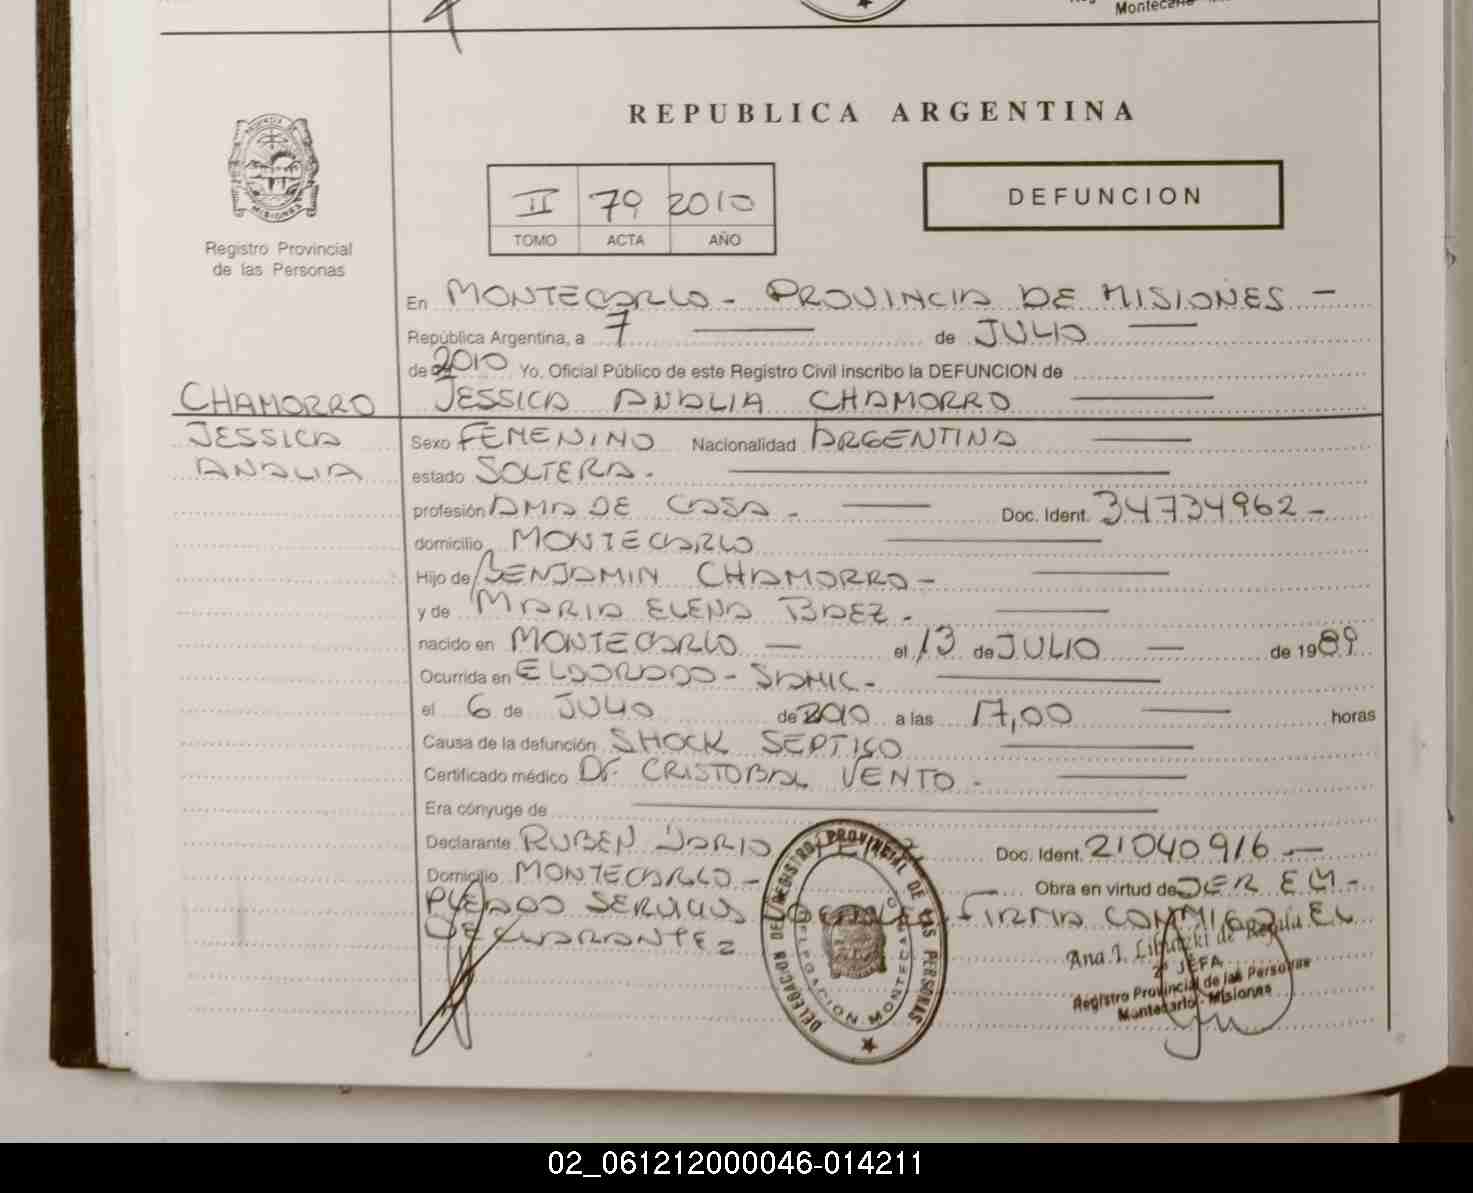 Montecarlo
REPUBLICA ARGENTINA
PROVINCIA DE
MISIONES
Registro Provincial
de las Personas
II 79 2010
TOMO ACTA AÑO
DEFUNCION
En MONTECARLO - PROVINCIA DE MISIONES -
República Argentina, a 7 de JULIO
de 2010 Yo. Oficial Público de este Registro Civil inscribo la DEFUNCION de
CHAMORRO JESSICA ANALIA CHAMORRO
JESSICA Sexo FEMENINO Nacionalidad ARGENTINA
ANALIA estado SOLTERA.
profesión AMA DE CASA - Doc. Ident. 34734962 -
domicilio MONTECARLO
Hijo de BENJAMIN CHAMORRO -
y de MARIA ELENA BAEZ.
nacido en MONTECARLO el 13 de JULIO de 1989
Ocurrida en ELDORADO - SAMIC -
el 6 de JULIO de 2010 a las 17,00 horas
Causa de la defunción SHOCK SEPTICO
Certificado médico Dr. CRISTOBAL VENTO -
Era cónyuge de
Declarante RUBEN DARIO Doc. Ident. 21040916
Domicilio MONTECARLO - Obra en virtud de SER EM-
PLEADO SERVICIO FIRMA CONMIGO EL
DECLARANTE
DELEGACION DEL REGISTRO PROVINCIAL DE LAS PERSONAS
DELEGACION MONTECARLO
Ana I. de
2ª JEFA
Registro Provincial de las Personas
Montecarlo - Misiones
02_061212000046-014211